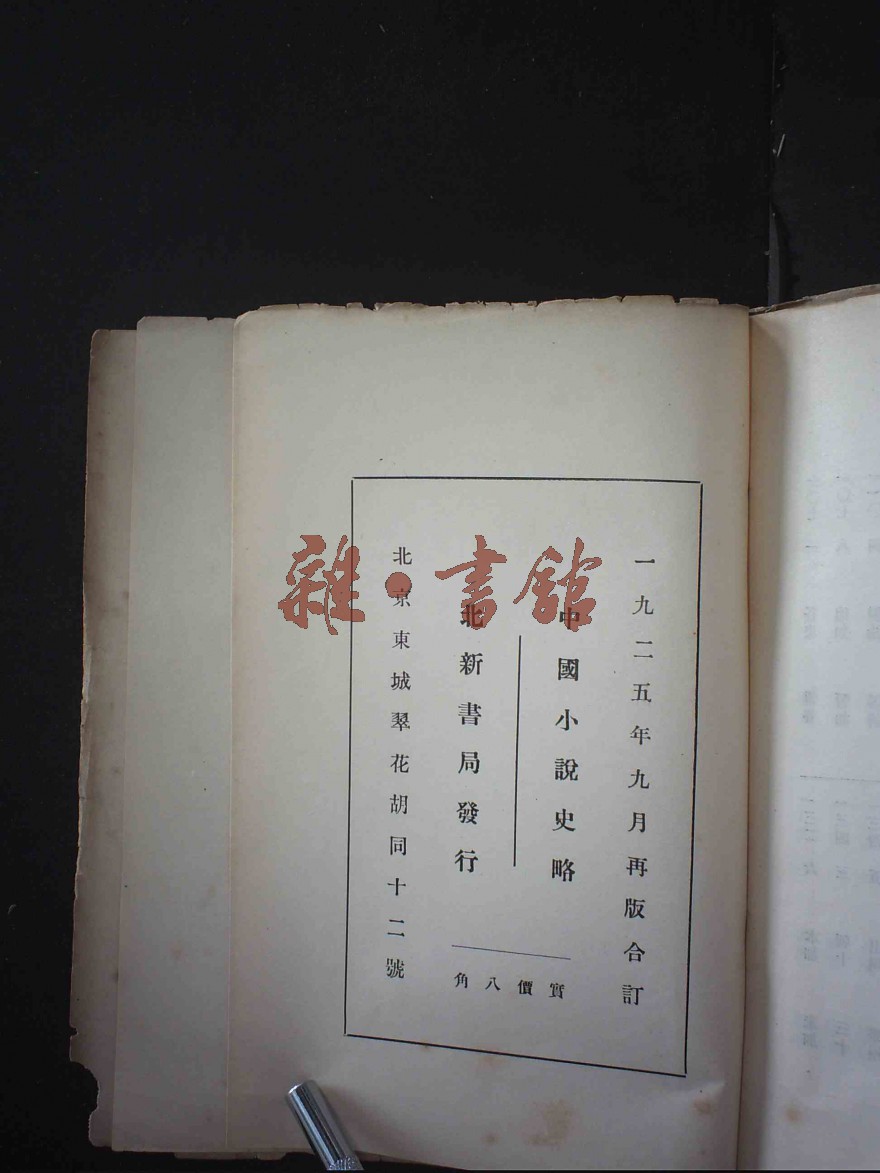 雜·書館
一九二五年九月再版合訂
中國小說史略
實價八角
北新書局發行
北京東城翠花胡同十二號